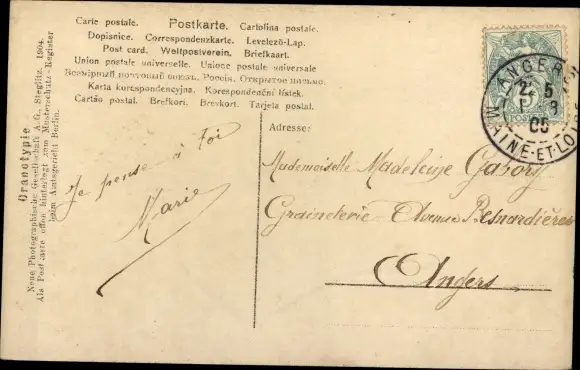 Carte postale. Postkarte. Cartolina postale.
Dopisnice. Correspondenzkarte. Levelező-Lap.
Post card. Weltpostverein. Briefkaart.
Union postale universelle. Unione postale universale
Всемірный почтовый союзъ. Россія. Открытое письмо.
Karta korespondencyjna. Korespondenční lístek.
Cartão postal. Brefkort. Brevkort. Tarjeta postal.
Granotypie
Neue Photographische Gesellschaft A.G., Steglitz. 1904.
Als Postkarte offen hinterlegt zum Musterschutz-Register
beim Amtsgericht Berlin.
Je pense à Toi
Marie
ANGERS
MAINE-ET-LOIRE
05
POSTES
Adresse:
Mademoiselle Madeleine Gabory
Graineterie Avenue Besnardières
Angers